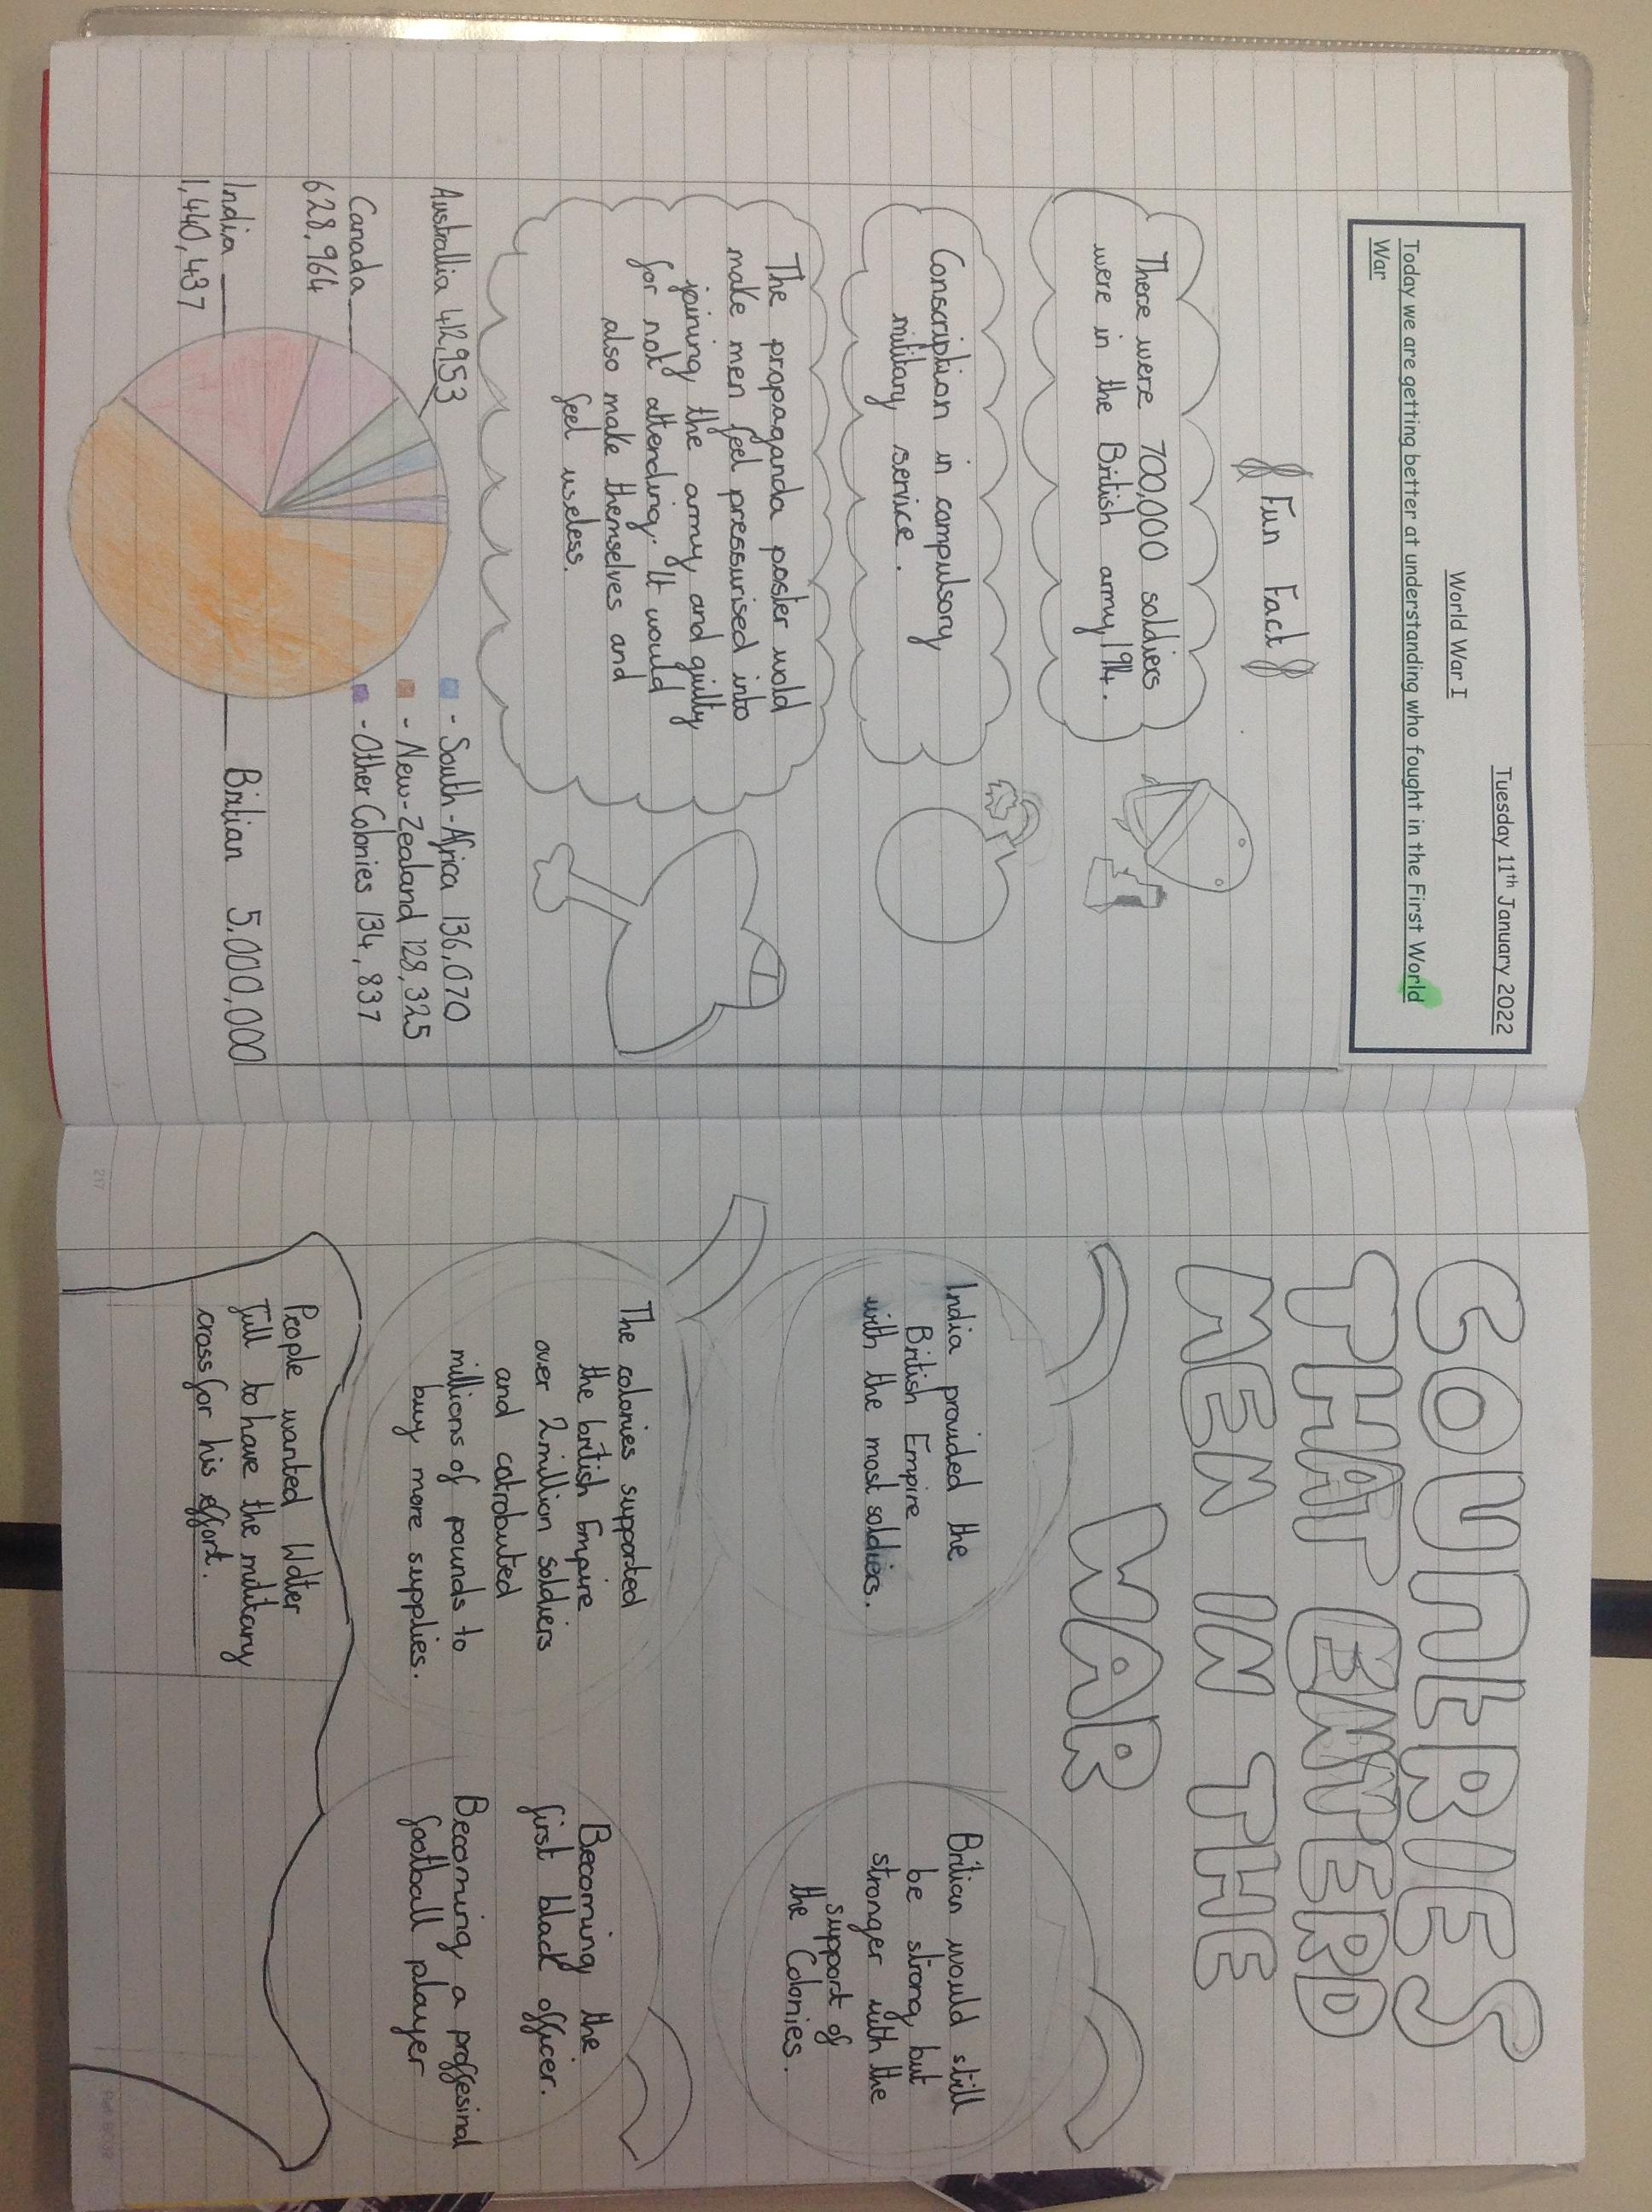 Tuesday 11th January 2022
World War I
Today we are getting better at understanding who fought in the First World
War
Fun Fact
There were 700,000 soldiers
were in the British army, 1914.
Conscription in campulsory
military service.
The propaganda poster wold
make men feel pressurised into
joining the army and guilty
for not attending. It would
also make themselves and
feel useless.
Australlia 412,953
Canada
628,964
India
1,440,437
- South-Africa 136,070
- New-Zealand 128,325
- Other Colonies 134,837
Britian 5,000,000
COUNtRIES
THAT ENTERD
MEN IN THE
WAR
India provided the
British Empire
with the most soldiers.
Britian would still
be strong but
stronger with the
support of
the Colonies.
The colonies supported
the british Empire
over 2million soldiers
and cotrobuted
millions of pounds to
buy more supplies.
Becoming the
first black officer.
Becoming a proffesinal
football player
People wanted Walter
Tull to have the military
cross for his effort.
217